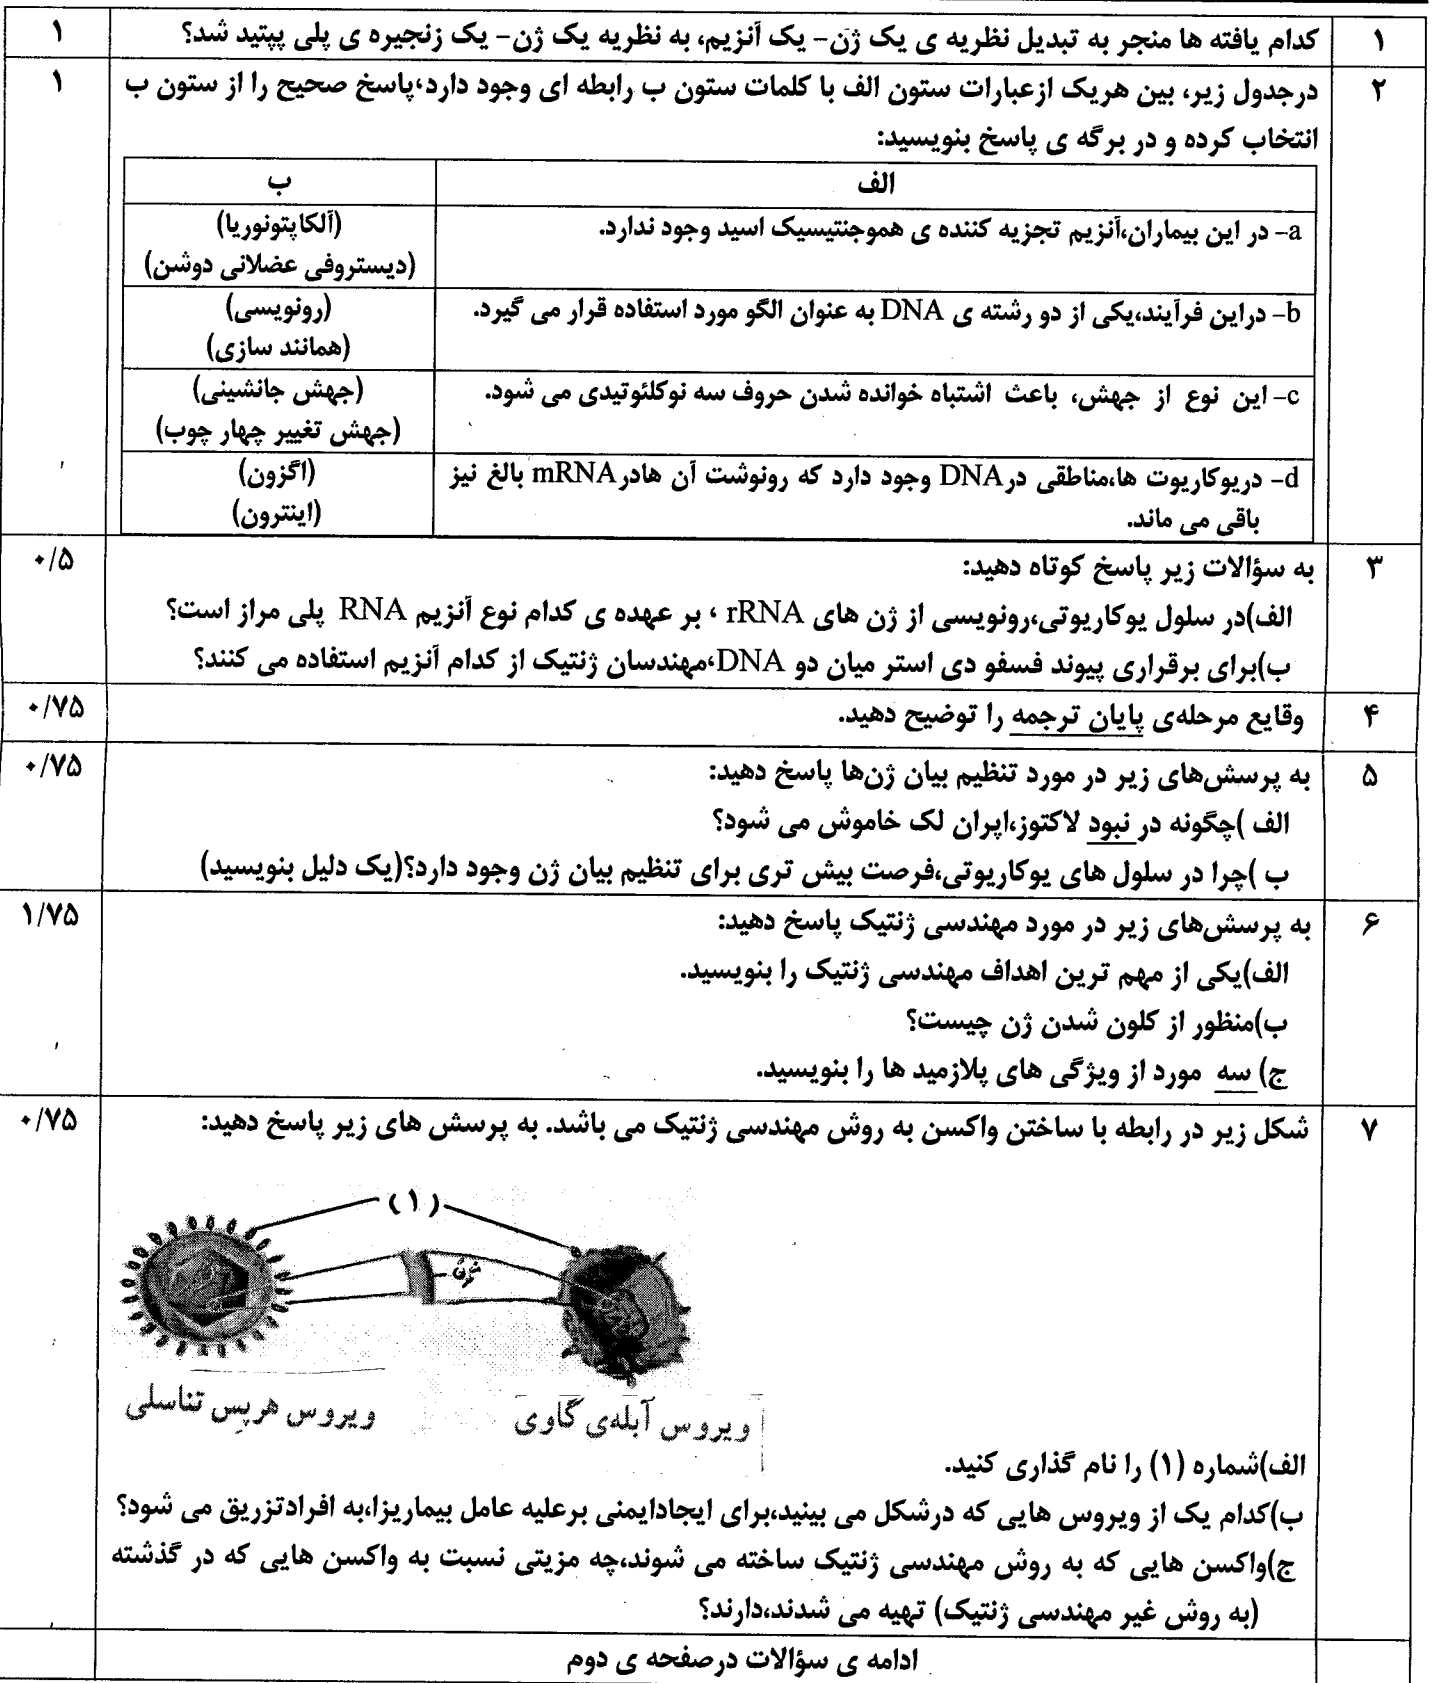 ۱ کدام یافته ها منجر به تبدیل نظریه ی یک ژن- یک آنزیم، به نظریه یک ژن- یک زنجیره ی پلی پپتید شد؟ ۱
۲ درجدول زیر، بین هریک ازعبارات ستون الف با کلمات ستون ب رابطه ای وجود دارد،پاسخ صحیح را از ستون ب ۱
انتخاب کرده و در برگه ی پاسخ بنویسید:
الف ب
a- در این بیماران،آنزیم تجزیه کننده ی هموجنتیسیک اسید وجود ندارد. (آلکاپتونوریا)
(دیستروفی عضلانی دوشن)
b- دراین فرآیند،یکی از دو رشته ی DNA به عنوان الگو مورد استفاده قرار می گیرد. (رونویسی)
(همانند سازی)
c- این نوع از جهش، باعث اشتباه خوانده شدن حروف سه نوکلئوتیدی می شود. (جهش جانشینی)
(جهش تغییر چهار چوب)
d- دریوکاریوت ها،مناطقی درDNA وجود دارد که رونوشت آن هادرmRNA بالغ نیز (اگزون)
باقی می ماند. (اینترون)
۳ به سؤالات زیر پاسخ کوتاه دهید: ۰/۵
الف)در سلول یوکاریوتی،رونویسی از ژن های rRNA ، بر عهده ی کدام نوع آنزیم RNA پلی مراز است؟
ب)برای برقراری پیوند فسفو دی استر میان دو DNA،مهندسان ژنتیک از کدام آنزیم استفاده می کنند؟
۴ وقایع مرحله‌ی پایان ترجمه را توضیح دهید. ۰/۷۵
۵ به پرسش‌های زیر در مورد تنظیم بیان ژن‌ها پاسخ دهید: ۰/۷۵
الف )چگونه در نبود لاکتوز،اپران لک خاموش می شود؟
ب )چرا در سلول های یوکاریوتی،فرصت بیش تری برای تنظیم بیان ژن وجود دارد؟(یک دلیل بنویسید)
۶ به پرسش‌های زیر در مورد مهندسی ژنتیک پاسخ دهید: ۱/۷۵
الف)یکی از مهم ترین اهداف مهندسی ژنتیک را بنویسید.
ب)منظور از کلون شدن ژن چیست؟
ج) سه مورد از ویژگی های پلازمید ها را بنویسید.
۷ شکل زیر در رابطه با ساختن واکسن به روش مهندسی ژنتیک می باشد. به پرسش های زیر پاسخ دهید: ۰/۷۵
(۱)
ژن
ویروس آبله‌ی گاوی ویروس هرپس تناسلی
الف)شماره (۱) را نام گذاری کنید.
ب)کدام یک از ویروس هایی که درشکل می بینید،برای ایجادایمنی برعلیه عامل بیماریزا،به افرادتزریق می شود؟
ج)واکسن هایی که به روش مهندسی ژنتیک ساخته می شوند،چه مزیتی نسبت به واکسن هایی که در گذشته
(به روش غیر مهندسی ژنتیک) تهیه می شدند،دارند؟
ادامه ی سؤالات درصفحه ی دوم